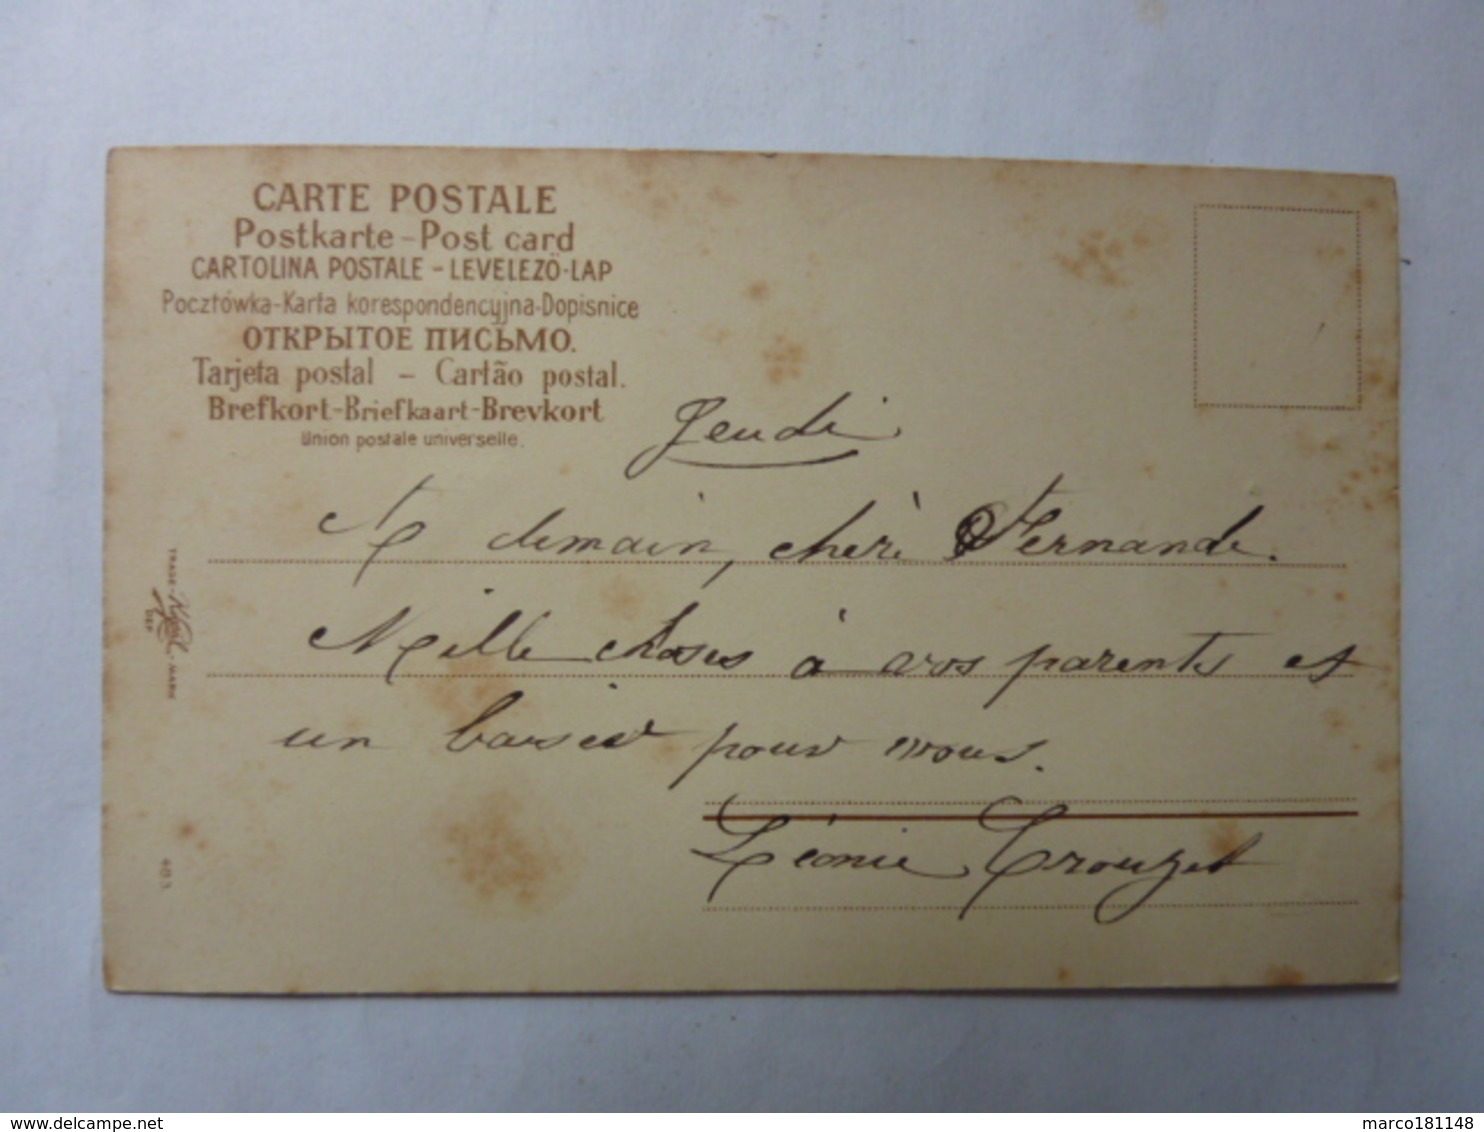 CARTE POSTALE
Postkarte - Post card
CARTOLINA POSTALE - LEVELEZÖ-LAP
Pocztówka-Karta korespondencyjna-Dopisnice
ОТКРЫТОЕ ПИСЬМО.
Tarjeta postal - Cartão postal.
Brefkort-Briefkaart-Brevkort
Union postale universelle.
Jeudi
A demain, chère Fernande.
Mille choses à vos parents et
un baiser pour vous.
Léonie Crouzet
TRADE MARK
DEP
483
delcampe.net
marco181148